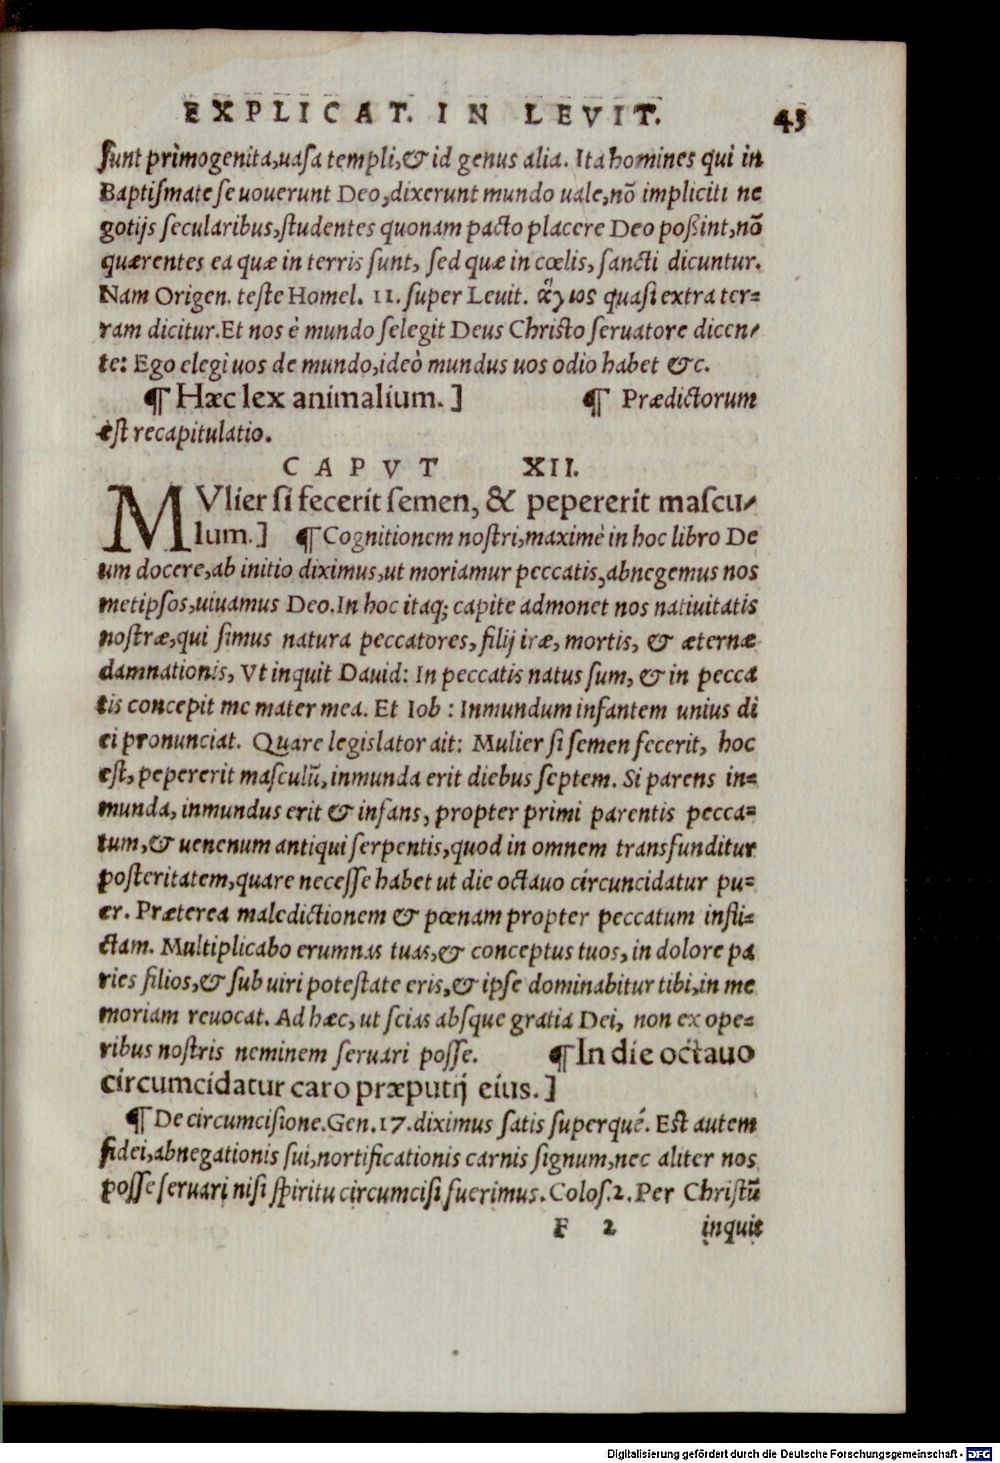 EXPLICAT. IN LEVIT. 43
ſunt primogenita,uaſa templi,& id genus alia. Ita homines qui in
Baptiſmate ſe uouerunt Deo,dixerunt mundo uale,nõ impliciti ne
gotijs ſecularibus,ſtudentes quonam pacto placere Deo poßint,nõ
quærentes ea quæ in terris ſunt, ſed quæ in cœlis, ſancti dicuntur.
Nam Origen. teſte Homel. 11. ſuper Leuit. ἅγιος quaſi extra ter-
ram dicitur.Et nos è mundo ſelegit Deus Chriſto ſeruatore dicen-
te: Ego elegi uos de mundo,ideò mundus uos odio habet &c.
¶ Hæc lex animalium.] ¶ Prædictorum
eſt recapitulatio.
CAPVT XII.
MVlier ſi fecerit ſemen, & pepererit maſcu-
lum.] ¶ Cognitionem noſtri,maximè in hoc libro De
um docere,ab initio diximus,ut moriamur peccatis,abnegemus nos
metipſos,uiuamus Deo.In hoc itaq; capite admonet nos natiuitatis
noſtræ,qui ſimus natura peccatores, filij iræ, mortis, & æternæ
damnationis, Vt inquit Dauid: In peccatis natus ſum, & in pecca
tis concepit me mater mea. Et Iob : Inmundum infantem unius di
ei pronunciat. Quare legislator ait: Mulier ſi ſemen fecerit, hoc
eſt, pepererit maſculũ, inmunda erit diebus ſeptem. Si parens in-
munda, inmundus erit & infans, propter primi parentis pecca-
tum,& uenenum antiqui ſerpentis,quod in omnem transfunditur
poſteritatem,quare neceſſe habet ut die octauo circuncidatur pu-
er. Præterea maledictionem & pœnam propter peccatum infli-
ctam. Multiplicabo erumnas tuas,& conceptus tuos, in dolore pa
ries filios,& ſub uiri poteſtate eris,& ipſe dominabitur tibi,in me
moriam reuocat. Ad hæc, ut ſcias abſque gratia Dei, non ex ope-
ribus noſtris neminem ſeruari poſſe. ¶ In die octauo
circumcidatur caro præputij eius.]
¶ De circumciſione.Gen.17.diximus ſatis ſuperqué. Eſt autem
fidei,abnegationis ſui,nortificationis carnis ſignum,nec aliter nos
poſſe ſeruari niſi ſpiritu circumciſi fuerimus.Coloſ.2.Per Chriſtũ
F 2 inquit
Digitalisierung gefördert durch die Deutsche Forschungsgemeinschaft - DFG